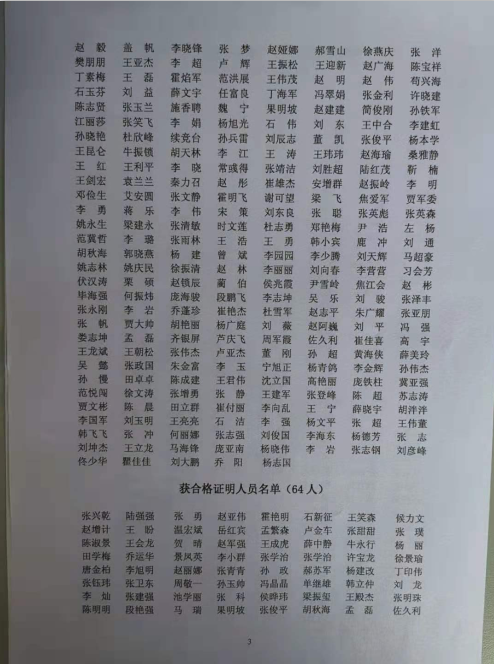 赵毅 盖帆 李晓锋 张梦 赵娅娜 郝雪山 徐燕庆 张洋
樊朋朋 王亚杰 李超 卢辉 王振松 王迎新 赵广海 陈宝祥
丁素梅 王磊 霍焰军 范洪展 王伟茂 赵明 赵伟 苟兴海
石玉芬 刘益 薛文宇 任富良 丁海军 冯翠娟 张金利 许晓建
陈志贤 张玉兰 施香聘 魏宁 果明坡 赵建建 简俊刚 孙铁军
江丽莎 张笑飞 李娟 杨旭光 石伟 刘东 王中合 李建虹
孙晓艳 杜欣峰 续竞台 孙兵雷 刘辰志 董凯 张俊平 杨本学
王昆仑 牛振锁 胡天林 李江 王涛 王玮玮 赵海瑜 桑雅静
王红 王利平 李晓 常彧得 张靖洁 刘胜超 陆红茂 靳楠
王剑宏 袁兰兰 秦力召 赵彤 崔雄杰 安增群 赵振岭 李明
邓俭生 艾安圆 张文静 霍明飞 谢可望 梁飞 焦爱军 贾军委
李勇 蒋乐 李伟 宋策 刘东良 张聪 张英彪 张英森
姚永生 梁建水 张清敏 时文莲 杜志勇 郑艳梅 尹浩 左杨
范冀哲 李璐 张雨林 王浩 王勇 韩小宾 鹿冲 刘通
胡秋海 郭晓燕 杨建 曾斌 李园园 李少腾 刘天辉 马超豪
姚志林 姚庆民 徐振清 赵林 李丽丽 刘向春 李营营 习会芳
伏汉涛 栗硕 赵锁辰 蔺伯 侯亮霞 尹雪岭 焦江会 赵彬
毕海强 何振炜 庞海骏 段鹏飞 李志坤 吴乐 刘骏 张泽丰
张永刚 李岩 乔蓬珍 崔艳杰 杜雪军 赵志平 朱广耀 张亚朋
张帆 贾大帅 胡艳丽 杨广庭 刘薇 赵阿巍 刘平 冯强
娄志坤 孟磊 齐银屏 芦庆飞 周军霞 佐久利 崔佳喜 高宇
王龙斌 王朝松 张伟杰 卢亚杰 董刚 孙超 黄海侠 薛美玲
吴懿 张政国 朱金富 李玉 宁旭正 杨青鸽 李金辉 孙伟杰
孙慢 田卓卓 陈成建 王君伟 沈立国 高艳丽 庞铁柱 冀亚强
范悦闯 徐文涛 张增勇 张静 王建军 张登峰 陈超 苏志涛
贾文彬 陈晨 田立群 崔付丽 李向乱 王宁 薛晓宇 胡洋洋
李国军 刘玉明 王亮亮 石洁 李强 杨文平 张超 王伟董
韩飞飞 张冲 何丽娜 张志强 刘俊国 李海东 杨德芳 张志
刘坤杰 王立龙 马海锋 庞亚南 杨晓伟 李岩 张志钢 刘彦峰
佟少华 瞿佳佳 刘大鹏 乔阳 杨志国
获合格证明人员名单（64人）
张兴乾 陆强强 张勇 赵亚伟 霍艳明 石新征 王笑森 候力文
赵增计 王盼 温宏斌 岳红宾 孟繁森 卢金车 张甜甜 张璞
陈淑景 王会龙 贺晴 赵军强 王成虎 薛中静 牛永行 杨丽
田学梅 乔运华 景风英 李小群 张学治 张学治 许宝龙 徐景瑜
唐金柏 李旭明 赵丽娜 张青青 孙政 郝苏军 杨建改 丁印伟
张钰玮 张卫东 周敬一 孙玉帅 冯晶晶 单继雄 韩立仲 刘龙
李灿 张建强 池学丽 张科 侯晔玮 梁振玺 王殿杰 张明珠
陈明明 段艳强 马瑞 果明坡 张俊平 胡秋海 孟磊 佐久利
3